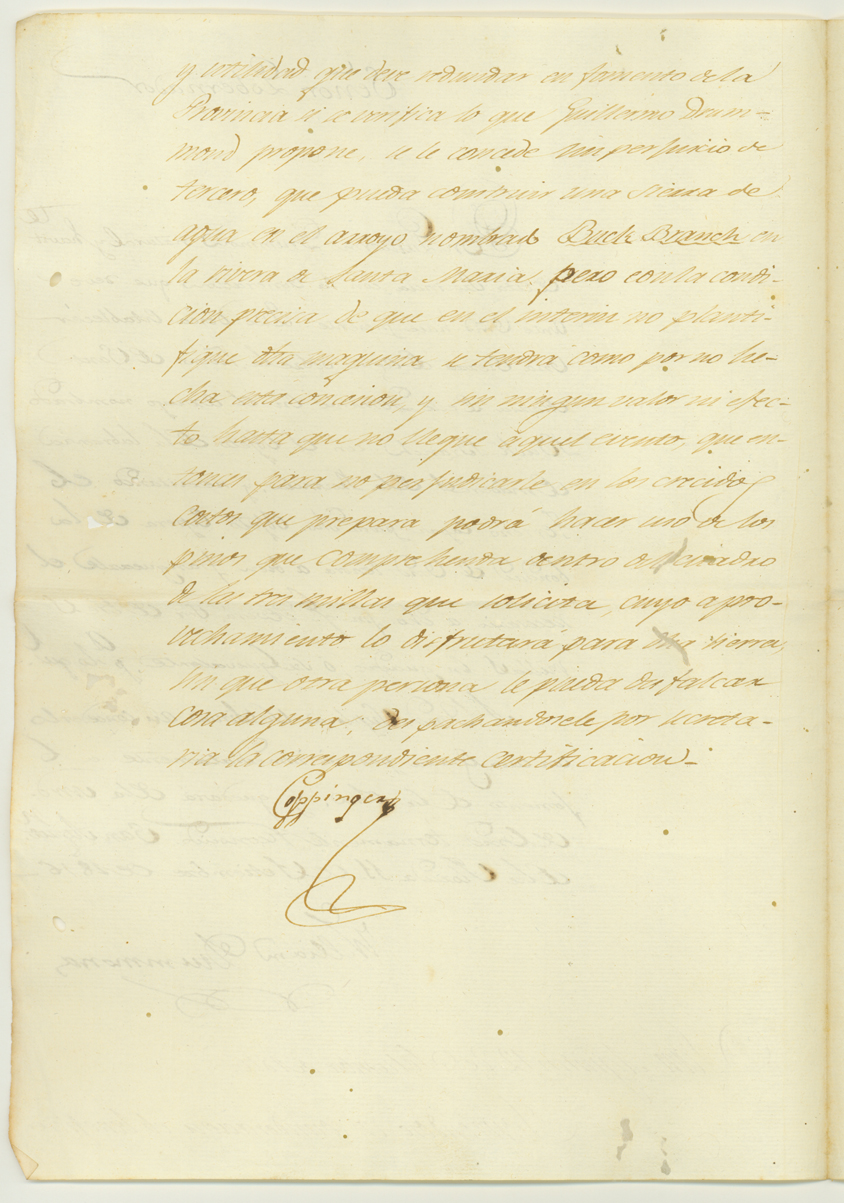 y utilidad que deve redundar en fomento de la
Provincia si se verifica lo que Guillermo Drum-
mond propone, se le concede sin perjuicio de
tercero, que pueda construir una Sierra de
agua en el arroyo nombrado Buck Branch en
la rivera de Santa Maria; pero con la condi-
cion precisa de que en el interin no planti-
fique dha maquina se tendrá como por no he-
cha esta concesion, y sin ningun valor ni efec-
to hasta que no llegue aquel evento, que en-
tonces para no perjudicarle en los crecidos
costos que prepara podrá hacer uso de los
pinos que comprehenda dentro del cuadro
de las tres millas que solicita, cuyo apro-
vechamiento lo disfrutará para dha sierra,
sin que otra persona le pueda desfalcar
cosa alguna; despachandosele por secreta-
ria la correspondiente certificacion_
Coppinger